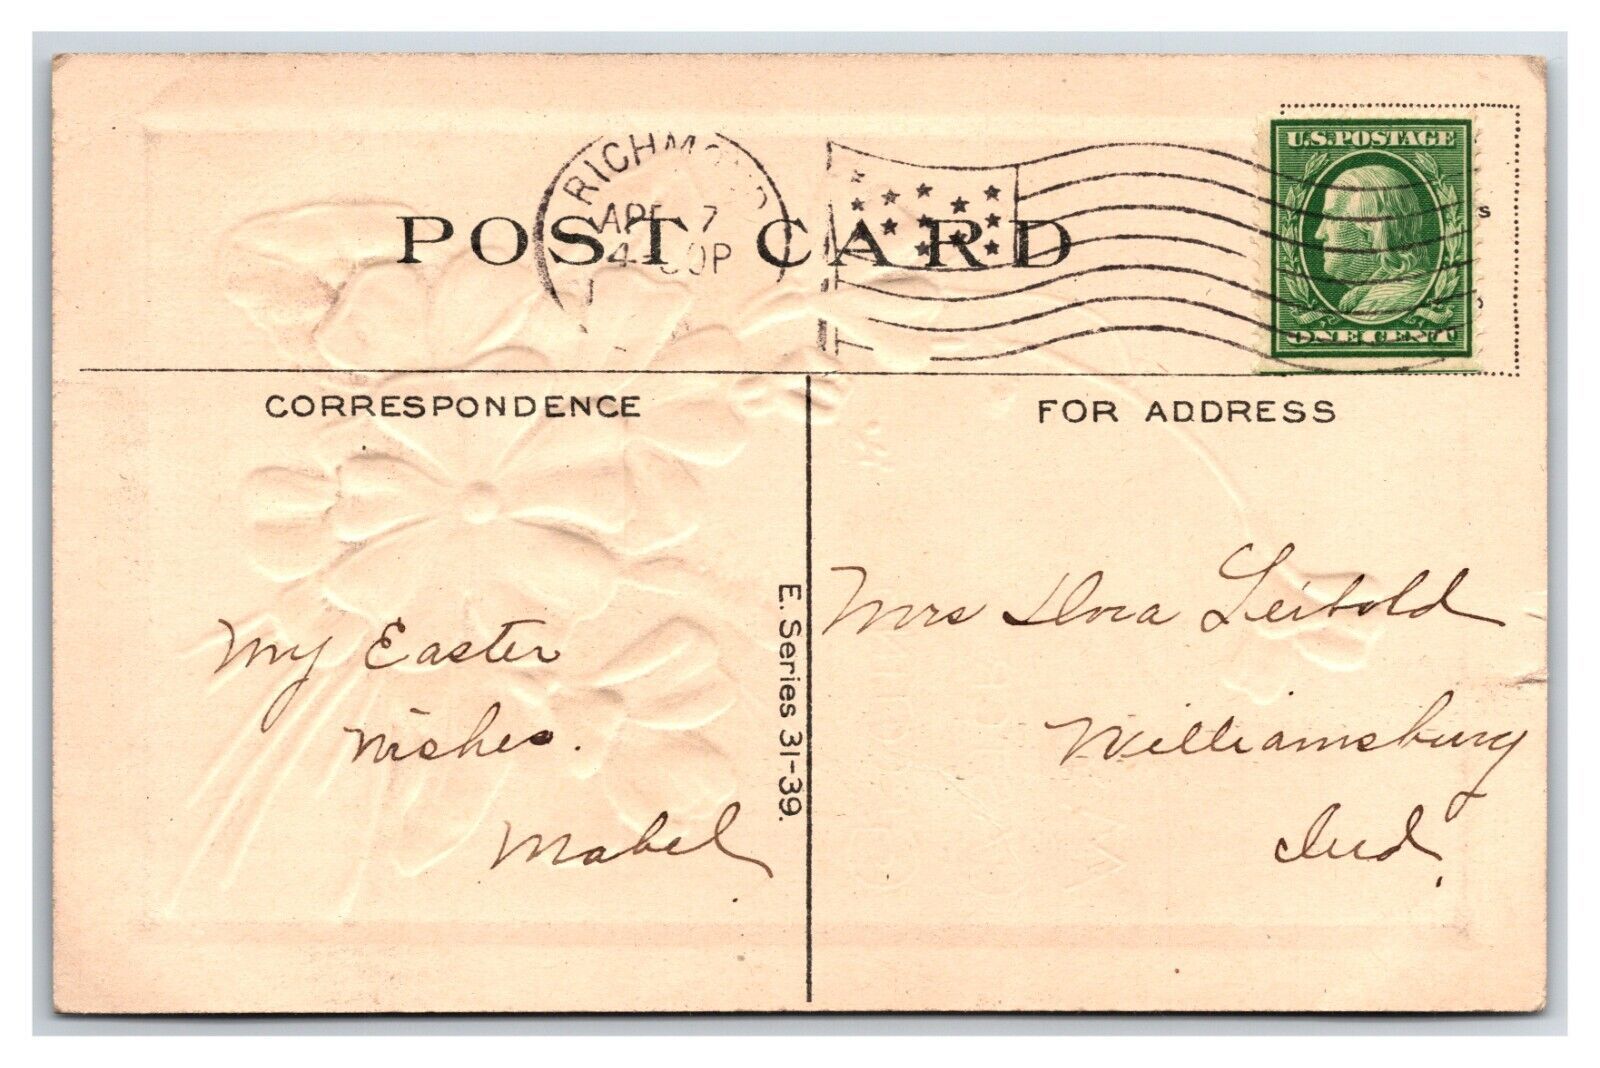 POST CARD
RICHMOND
APR 7
4- 30P
U.S. POSTAGE
ONE CENT
CORRESPONDENCE
FOR ADDRESS
My Easter
wishes.
Mabel
E. Series 31-39.
Mrs Dora Leibold
Williamsburg
Ind.